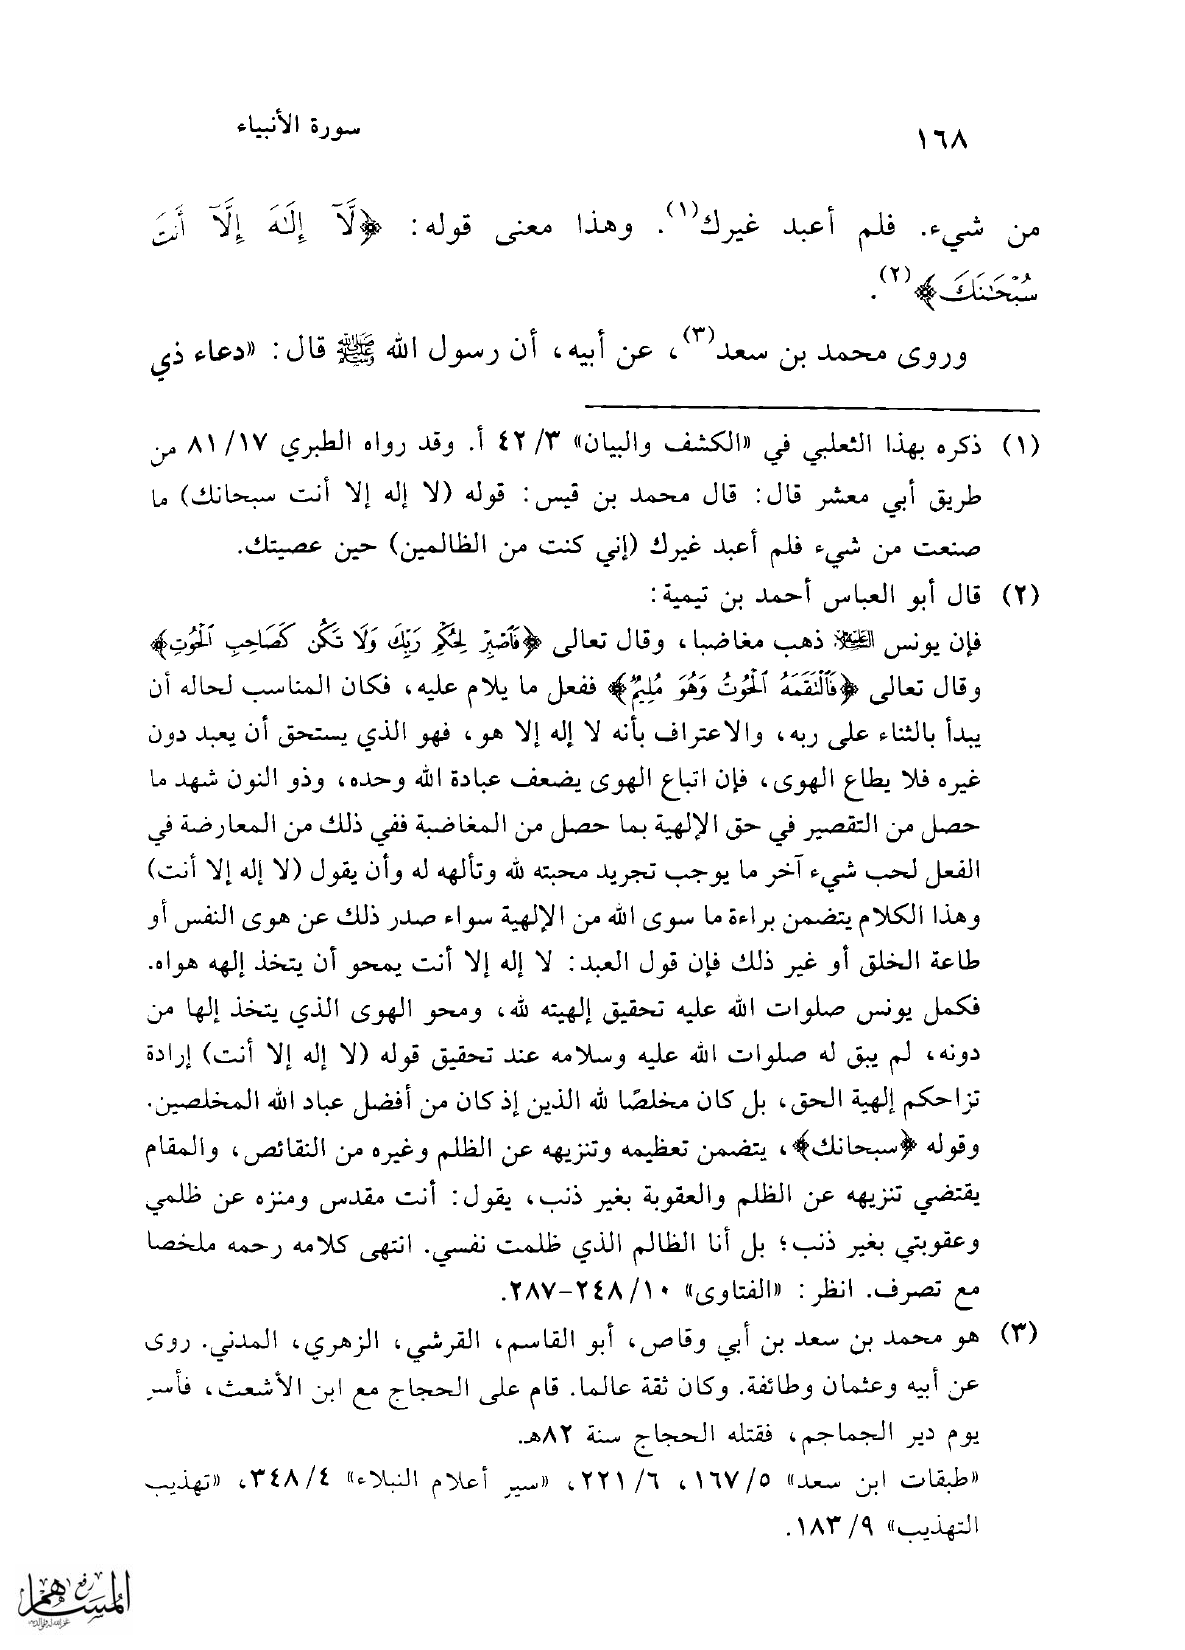 ١٦٨
سورة الأنبياء
من شيء. فلم أعبد غيرك(١). وهذا معنى قوله: ﴿لَّآ إِلَٰهَ إِلَّآ أَنتَ
سُبْحَٰنَكَ﴾(٢).
وروى محمد بن سعد(٣)، عن أبيه، أن رسول الله ﷺ قال: «دعاء ذي
(١) ذكره بهذا الثعلبي في «الكشف والبيان» ٣/ ٤٢ أ. وقد رواه الطبري ١٧/ ٨١ من
طريق أبي معشر قال: قال محمد بن قيس: قوله (لا إله إلا أنت سبحانك) ما
صنعت من شيء فلم أعبد غيرك (إني كنت من الظالمين) حين عصيتك.
(٢) قال أبو العباس أحمد بن تيمية:
فإن يونس عليه السلام ذهب مغاضبا، وقال تعالى ﴿فَٱصْبِرْ لِحُكْمِ رَبِّكَ وَلَا تَكُن كَصَاحِبِ ٱلْحُوتِ﴾
وقال تعالى ﴿فَٱلْتَقَمَهُ ٱلْحُوتُ وَهُوَ مُلِيمٌ﴾ ففعل ما يلام عليه، فكان المناسب لحاله أن
يبدأ بالثناء على ربه، والاعتراف بأنه لا إله إلا هو، فهو الذي يستحق أن يعبد دون
غيره فلا يطاع الهوى، فإن اتباع الهوى يضعف عبادة الله وحده، وذو النون شهد ما
حصل من التقصير في حق الإلهية بما حصل من المغاضبة ففي ذلك من المعارضة في
الفعل لحب شيء آخر ما يوجب تجريد محبته لله وتألهه له وأن يقول (لا إله إلا أنت)
وهذا الكلام يتضمن براءة ما سوى الله من الإلهية سواء صدر ذلك عن هوى النفس أو
طاعة الخلق أو غير ذلك فإن قول العبد: لا إله إلا أنت يمحو أن يتخذ إلهه هواه.
فكمل يونس صلوات الله عليه تحقيق إلهيته لله، ومحو الهوى الذي يتخذ إلها من
دونه، لم يبق له صلوات الله عليه وسلامه عند تحقيق قوله (لا إله إلا أنت) إرادة
تزاحكم إلهية الحق، بل كان مخلصًا لله الذين إذ كان من أفضل عباد الله المخلصين.
وقوله ﴿سبحانك﴾، يتضمن تعظيمه وتنزيهه عن الظلم وغيره من النقائص، والمقام
يقتضي تنزيهه عن الظلم والعقوبة بغير ذنب، يقول: أنت مقدس ومنزه عن ظلمي
وعقوبتي بغير ذنب؛ بل أنا الظالم الذي ظلمت نفسي. انتهى كلامه رحمه ملخصا
مع تصرف. انظر: «الفتاوى» ١٠/ ٢٤٨-٢٨٧.
(٣) هو محمد بن سعد بن أبي وقاص، أبو القاسم، القرشي، الزهري، المدني. روى
عن أبيه وعثمان وطائفة. وكان ثقة عالما. قام على الحجاج مع ابن الأشعث، فأسر
يوم دير الجماجم، فقتله الحجاج سنة ٨٢هـ.
«طبقات ابن سعد» ٥/ ١٦٧، ٦/ ٢٢١، «سير أعلام النبلاء» ٤/ ٣٤٨، «تهذيب
التهذيب» ٩/ ١٨٣.